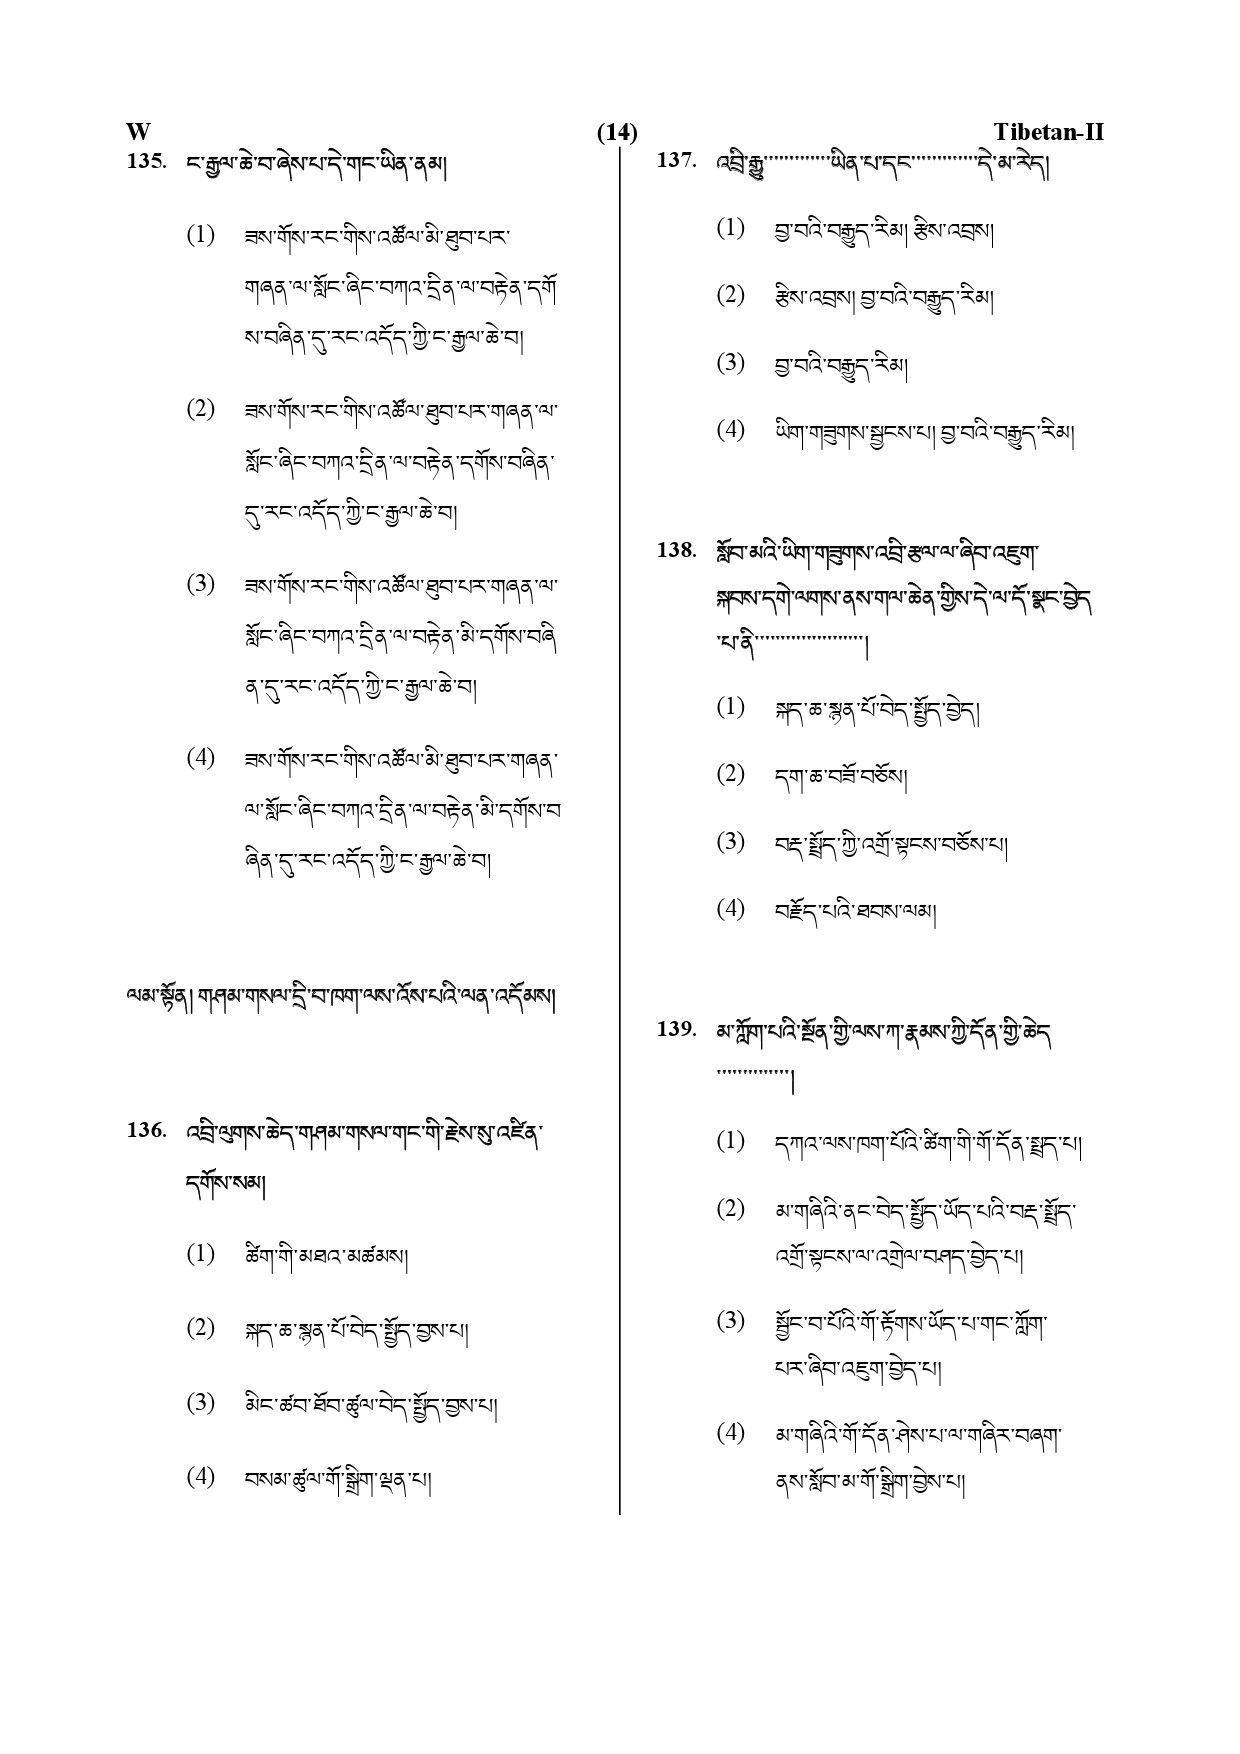 W (14) Tibetan-II
135. ང་རྒྱལ་ཆེ་བ་ཞེས་པ་དེ་གང་ཡིན་ནམ།
(1) ཟས་གོས་རང་གིས་འཚོལ་མི་ཐུབ་པར་
གཞན་ལ་སློང་ཞིང་བཀའ་དྲིན་ལ་བརྟེན་དགོ
ས་བཞིན་དུ་རང་འདོད་ཀྱི་ང་རྒྱལ་ཆེ་བ།
(2) ཟས་གོས་རང་གིས་འཚོལ་ཐུབ་པར་གཞན་ལ་
སློང་ཞིང་བཀའ་དྲིན་ལ་བརྟེན་དགོས་བཞིན་
དུ་རང་འདོད་ཀྱི་ང་རྒྱལ་ཆེ་བ།
(3) ཟས་གོས་རང་གིས་འཚོལ་ཐུབ་པར་གཞན་ལ་
སློང་ཞིང་བཀའ་དྲིན་ལ་བརྟེན་མི་དགོས་བཞི
ན་དུ་རང་འདོད་ཀྱི་ང་རྒྱལ་ཆེ་བ།
(4) ཟས་གོས་རང་གིས་འཚོལ་མི་ཐུབ་པར་གཞན་
ལ་སློང་ཞིང་བཀའ་དྲིན་ལ་བརྟེན་མི་དགོས་བ
ཞིན་དུ་རང་འདོད་ཀྱི་ང་རྒྱལ་ཆེ་བ།
ལམ་སྟོན། གཤམ་གསལ་དྲི་བ་ཁག་ལས་འོས་པའི་ལན་འདོམས།
136. འབྲི་ལུགས་ཆེད་གཤམ་གསལ་གང་གི་རྗེས་སུ་འཛིན་
དགོས་སམ།
(1) ཚིག་གི་མཐའ་མཚམས།
(2) སྐད་ཆ་སྙན་པོ་བེད་སྤྱོད་བྱས་པ།
(3) མིང་ཚབ་ཐོབ་ཚུལ་བེད་སྤྱོད་བྱས་པ།
(4) བསམ་ཚུལ་གོ་སྒྲིག་ལྡན་པ།
137. འབྲི་རྒྱུ་་་་་་་་་་་་་ཡིན་པ་དང་་་་་་་་་་་་་དེ་མ་རེད།
(1) བྱ་བའི་བརྒྱུད་རིམ། རྩིས་འབྲས།
(2) རྩིས་འབྲས། བྱ་བའི་བརྒྱུད་རིམ།
(3) བྱ་བའི་བརྒྱུད་རིམ།
(4) ཡིག་གཟུགས་སྦྱངས་པ། བྱ་བའི་བརྒྱུད་རིམ།
138. སློབ་མའི་ཡིག་གཟུགས་འབྲི་རྩལ་ལ་ཞིབ་འཇུག་
སྐབས་དགེ་ལགས་ནས་གལ་ཆེན་གྱིས་དེ་ལ་དོ་སྣང་བྱེད
་པ་ནི་་་་་་་་་་་་་་་་་་་་་།
(1) སྐད་ཆ་སྙན་པོ་བེད་སྤྱོད་བྱེད།
(2) དག་ཆ་བཟོ་བཅོས།
(3) བརྡ་སྤྲོད་ཀྱི་འགྲོ་སྟངས་བཅོས་པ།
(4) བརྗོད་པའི་ཐབས་ལམ།
139. མ་ཀློག་པའི་སྔོན་གྱི་ལས་ཀ་རྣམས་ཀྱི་དོན་གྱི་ཆེད
་་་་་་་་་་་་་་།
(1) དཀའ་ལས་ཁག་པོའི་ཚིག་གི་གོ་དོན་སྤྲད་པ།
(2) མ་གཞིའི་ནང་བེད་སྤྱོད་ཡོད་པའི་བརྡ་སྤྲོད་
འགྲོ་སྟངས་ལ་འགྲེལ་བཤད་བྱེད་པ།
(3) སྦྱོང་བ་པོའི་གོ་རྟོགས་ཡོད་པ་གང་ཀློག་
པར་ཞིབ་འཇུག་བྱེད་པ།
(4) མ་གཞིའི་གོ་དོན་ཤེས་པ་ལ་གཞིར་བཞག་
ནས་སློབ་མ་གོ་སྒྲིག་བྱེས་པ།